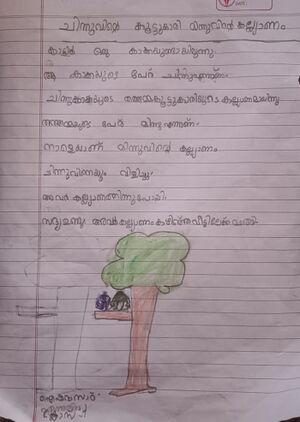 ചിന്നുവിന്റെ കൂട്ടുകാരി മിന്നുവിന്റെ കല്ല്യാണം
കാട്ടിൽ ഒരു കാക്കയുണ്ടായിരുന്നു
ആ കാക്കയുടെ പേര് ചിന്നുഎന്നാണ്.
ചിന്നുകാക്കയുടെ തത്തമ്മകൂട്ടുകാരിയുടെ കല്ല്യണമായിരുന്നു
തത്തമ്മയുടെ പേര് മിന്നു എന്നാണ്
നാളെയാണ് മിന്നുവിന്റെ കല്ല്യാണം
ചിന്നുവിനെയും വിളിച്ചു.
അവർ കല്ല്യാണത്തിന്നുപോയി.
സദ്യഉണ്ടു അവർ കല്ല്യാണംകഴിഞ്ഞ് വീട്ടിലേക്ക്